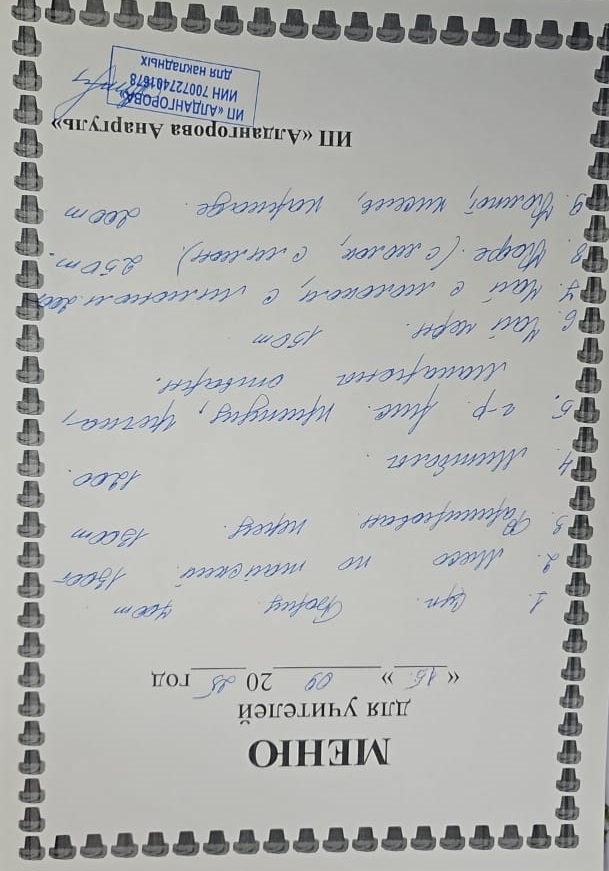 МЕНЮ
ДЛЯ УЧИТЕЛЕЙ
« 15. » 09 20 25 год
1. Суп. Борщ. 700т
2. Мясо по тайский. 1500т
3. Фарширован перец. 1300т
4. Митболы. 1200.
5. г-р. Рис. кукуруз, гречка,
макароны отварн.
6. Чай черн. 150т
7. Чай с молоком, с лимоном 200
8. Кофе (с молок, с лимон). 250т.
9. Компот, кисель, каркаде. 200т
ИП «Алдангорова Анаргуль»
ИП «АЛДАНГОРОВА»
ИИН 700727401678
ДЛЯ НАКЛАДНЫХ